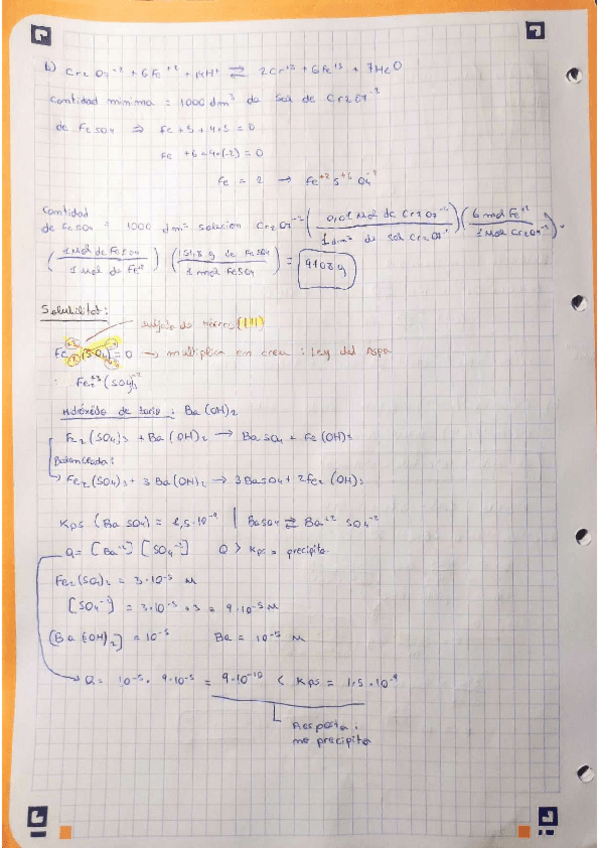 b) Cr2O7-2 + 6Fe+2 + 14H+ ⇄ 2Cr+3 + 6Fe+3 + 7H2O
Cantidad minima = 1000 dm3 de sol de Cr2O7-2
de FeSO4 ⇒ Fe + S + 4·O = 0
Fe +6 + 4·(-2) = 0
Fe = 2 → Fe+2 S+6 O4-2
Cantidad
de FeSO4 = 1000 dm3 solucion Cr2O7-2 (0,01 mol de Cr2O7-2 / 1 dm3 de sol Cr2O7-2) (6 mol Fe+2 / 1 mol Cr2O7-2) ·
(1 mol de FeSO4 / 1 mol de Fe+2) (151,8 g de FeSO4 / 1 mol FeSO4) = 9108 g
Solubilitat:
sulfato de hierro (III)
Fe (SO4) = 0 → multiplica en creu : Ley del Aspa
: Fe2+3 (SO4)3-2
Hidróxido de bario : Ba(OH)2
Fe2(SO4)3 + Ba(OH)2 → BaSO4 + Fe(OH)3
Balanceada:
Fe2(SO4)3 + 3Ba(OH)2 → 3BaSO4 + 2Fe2(OH)3
Kps (BaSO4) = 1,5·10-9 | BaSO4 ⇄ Ba+2 SO4-2
Q = [Ba+2] [SO4-2] Q > Kps = precipita
Fe2(SO4)3 = 3·10-5 M
[SO4-2] = 3·10-5 · 3 = 9·10-5 M
[Ba(OH)2] = 10-5 Ba = 10-5 M
Q = 10-5 · 9·10-5 = 9·10-10 < Kps = 1,5·10-9
Resposta:
no precipita